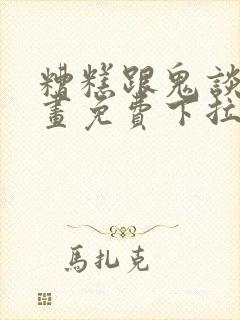 糟糕跟鬼談
畫免費下拉
馬扎克